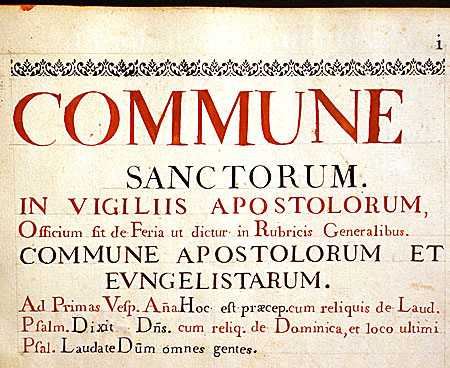 i
COMMUNE
SANCTORUM.
IN VIGILIIS APOSTOLORUM,
Officium fit de Feria ut dictur in Rubricis Generalibus.
COMMUNE APOSTOLORUM ET
EVNGELISTARUM.
Ad Primas Vesp. Aña. Hoc est præcep. cum reliquis de Laud.
Psalm. Dixit Dñs. cum reliq. de Dominica, et loco ultimi
Psal. Laudate Dūm omnes gentes.